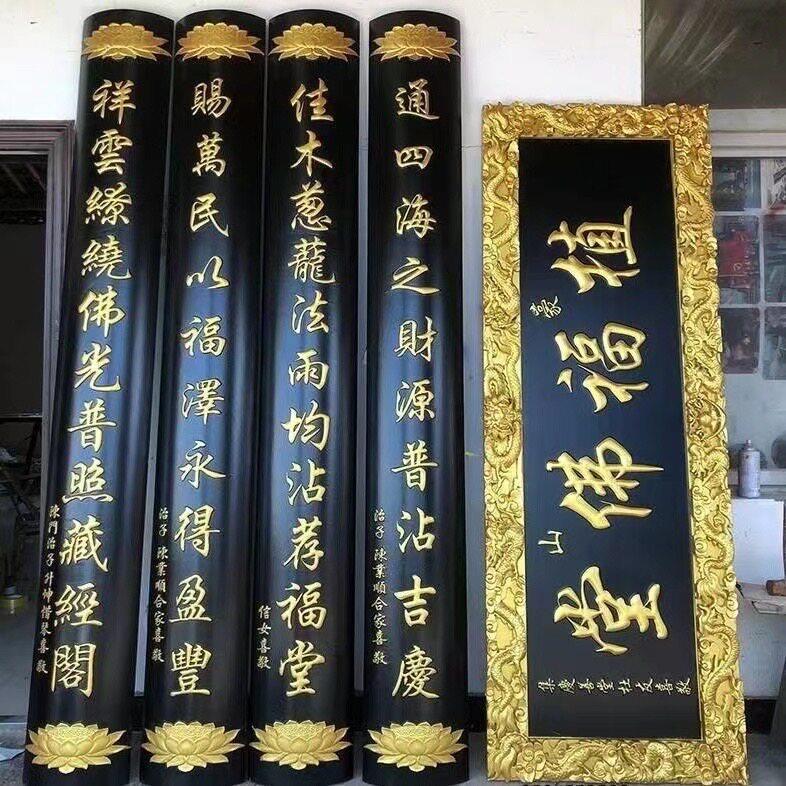 植福佛堂
山
集慶善堂社友喜敬
通四海之財源普沾吉慶
治子 陳業順合家喜敬
佳木蔥蘢法雨均沾荐福堂
信女喜敬
賜萬民以福澤永得盈豐
治子 陳業順合家喜敬
祥雲繚繞佛光普照藏經閣
陳門治子升坤惜琴喜敬